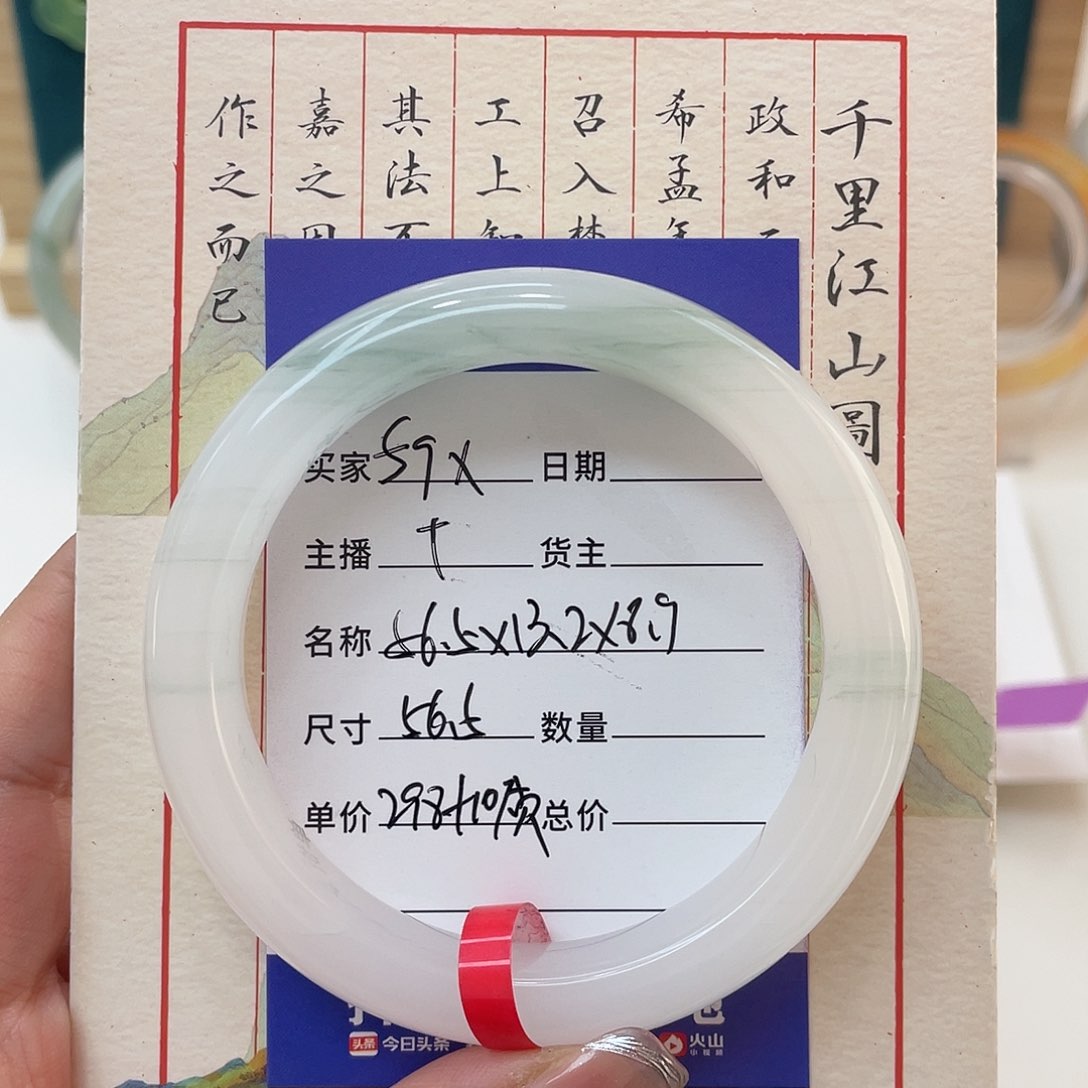 千里江山圖
政和
希孟
召入
工上
其法
嘉之
作之而已
买家 59X 日期
主播 T 货主
名称 56.5X13.2X8.9
尺寸 56.5 数量
单价 298+10 总价
头条 今日头条 火山
小视频